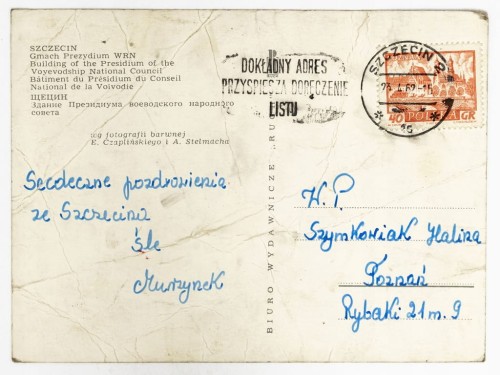 SZCZECIN
Gmach Prezydium WRN
Building of the Presidium of the
Voyevodship National Council
Bâtiment du Présidium du Conseil
National de la Voivodie
ЩЕЦИН
Здание Президиума воеводского народного
совета
wg fotografii barwnej
E. Czaplińskiego i A. Stelmacha
Serdeczne pozdrowienia
ze Szczecina
śle
Murzynek
BIURO WYDAWNICZE „RU
DOKŁADNY ADRES
PRZYSPIESZA DORĘCZENIE
LISTU
SZCZECIN 2
40 POLSKA GR
W. P.
Szymkowiak Halina
Poznań
Rybaki 21 m. 9